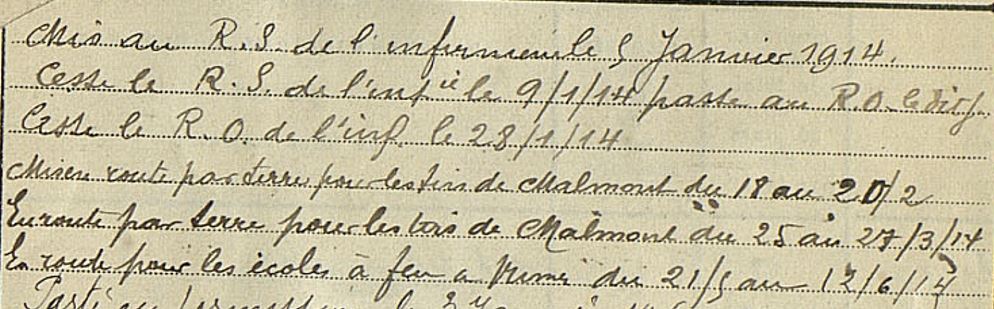 Mis au R.S. de l'infirmerie le 5 Janvier 1914.
Cesse le R.S. de l'infie le 9/1/14 passe au R.O. le dit j.
Cesse le R.O. de l'inf. le 28/1/14
Mis en route par terre pour les tirs de Malmont du 18 au 20/2
En route par terre pour les tirs de Malmont du 25 au 27/3/14
En route pour les écoles à feu a du 21/5 au 12/6/14
Parti en le